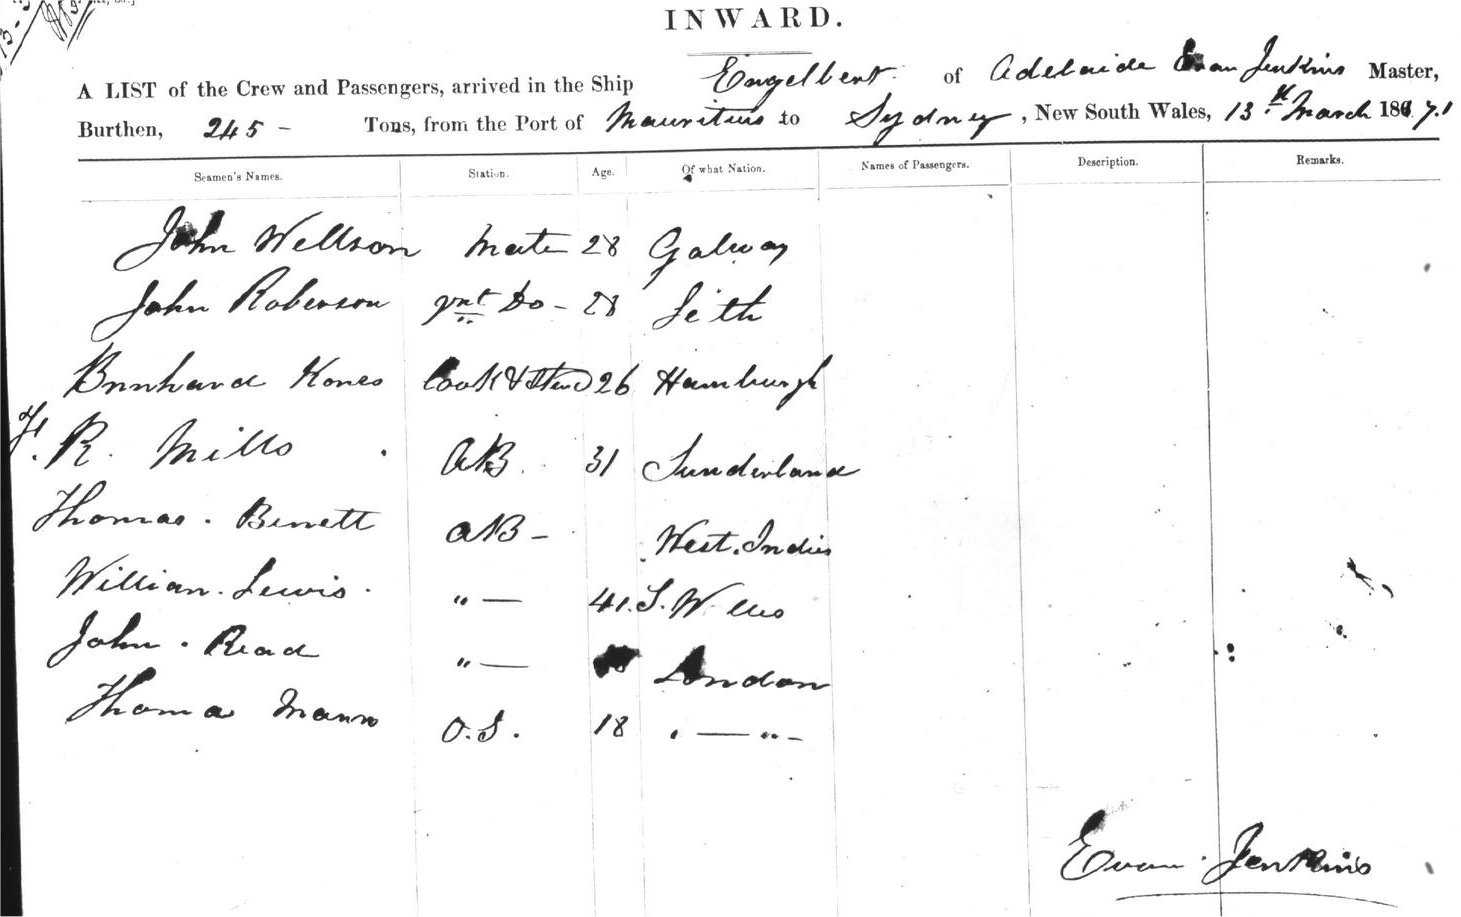 INWARD.
A LIST of the Crew and Passengers, arrived in the Ship Engelbert of Adelaide Evan Jenkins Master,
Burthen, 245 - Tons, from the Port of Mauritius to Sydney, New South Wales, 13th March 1871
Seamen's Names. Station. Age. Of what Nation. Names of Passengers. Description. Remarks.
John Wellson Mate 28 Galway
John Roberson Do - 28 Leith
Bernhard Kones Cook & Stewd 26 Hamburgh
R. Mills AB. 31 Sunderland
Thomas. Benett AB - West. Indies
William. Lewis. " — 41. S. Wales
John. Read " — London
Thomas Mann O.S. 18 " — " -
Evan Jenkins